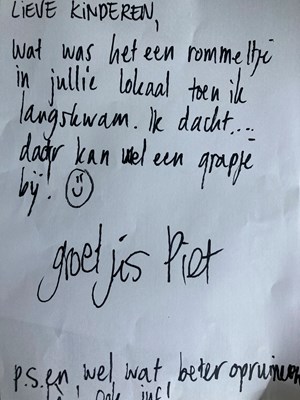 LIEVE KINDEREN,
wat was het een rommeltje
in jullie lokaal toen ik
langskwam. Ik dacht....
daar kan wel een grapje
bij!
groetjes Piet
p.s. en wel wat beter opruimen
ook